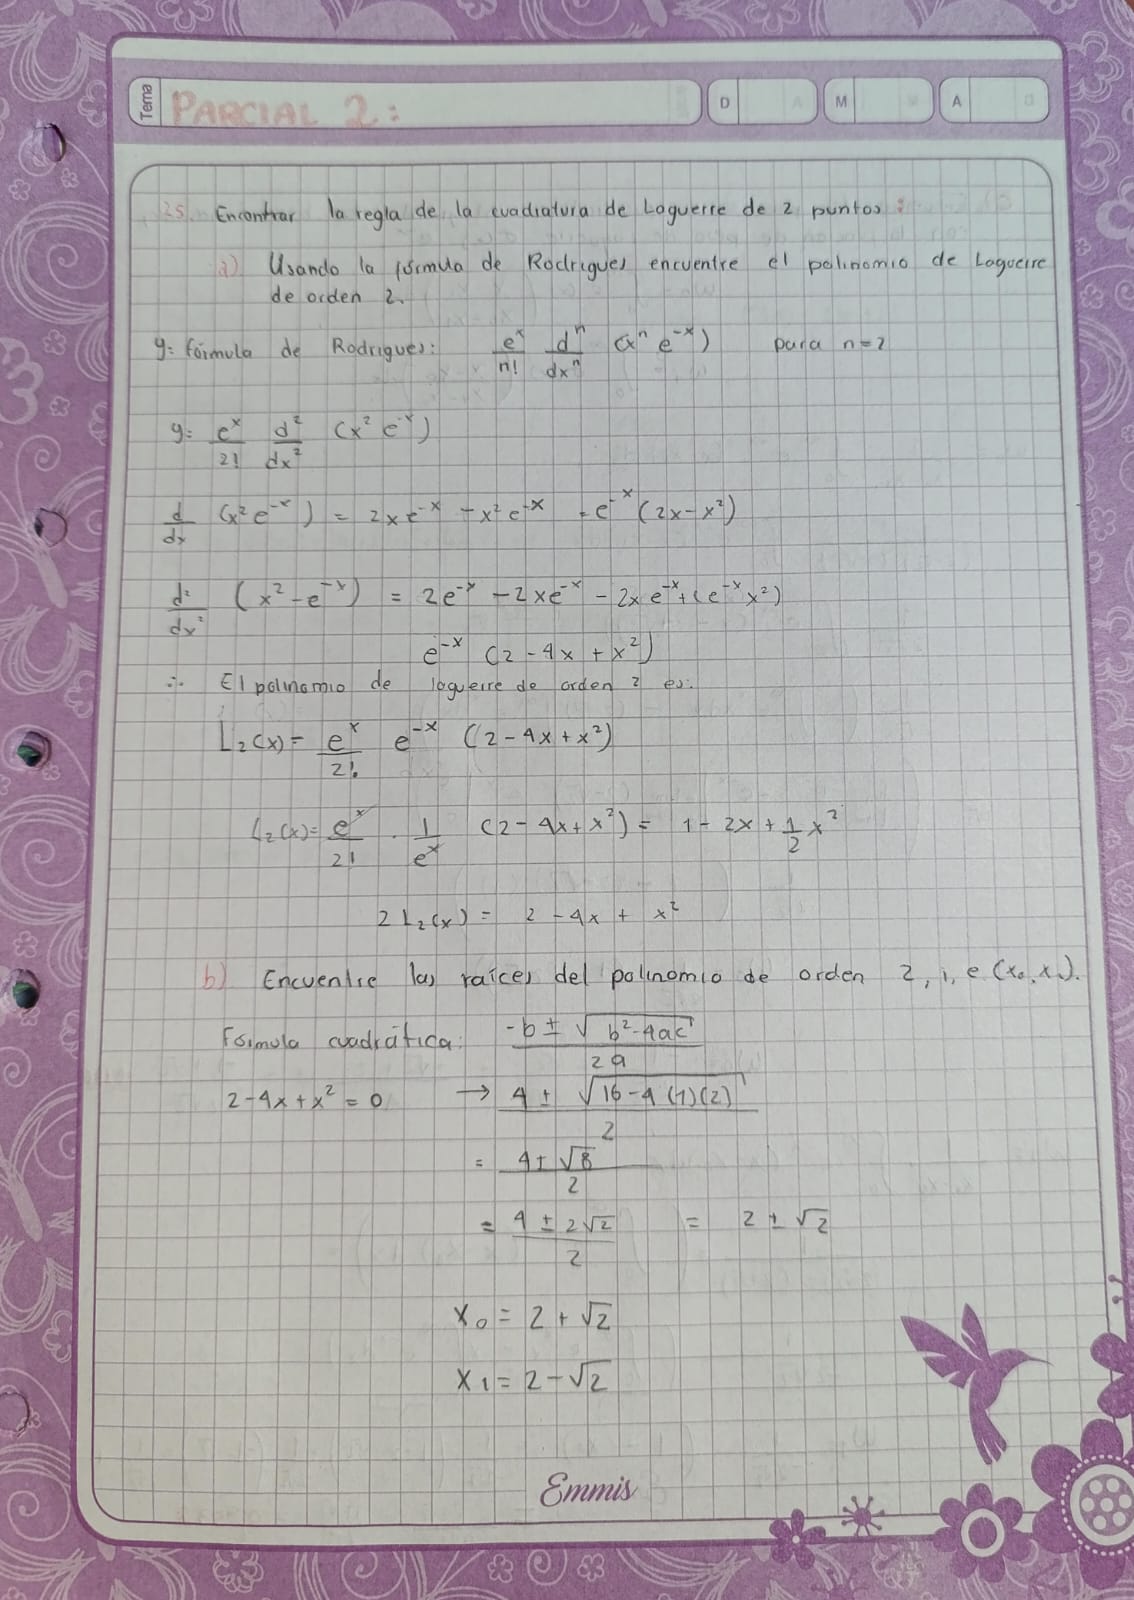 Tema PARCIAL 2: D M A
25. Encontrar la regla de la cuadratura de Laguerre de 2 puntos:
a) Usando la fórmula de Rodrigues encuentre el polinomio de Laguerre
de orden 2.
y= fórmula de Rodrigues: e^x/n! d^n/dx^n (x^n e^-x) para n=2
y= e^x/2! d²/dx² (x² e^-x)
d/dx (x² e^-x) = 2xe^-x - x² e^-x = e^-x (2x - x²)
d²/dx² (x² - e^-x) = 2e^-x - 2xe^-x - 2xe^-x + (e^-x x²)
e^-x (2 - 4x + x²)
∴ El polinomio de laguerre de orden 2 es:
L₂(x) = e^x/2! e^-x (2 - 4x + x²)
L₂(x) = e^x/2! · 1/e^x (2 - 4x + x²) = 1 - 2x + 1/2 x²
2 L₂(x) = 2 - 4x + x²
b) Encuentre las raíces del polinomio de orden 2, i, e (x₀, x₁).
Fórmula cuadrática: -b ± √(b² - 4ac) / 2a
2 - 4x + x² = 0 → 4 ± √(16 - 4(1)(2)) / 2
= 4 ± √8 / 2
= 4 ± 2√2 / 2 = 2 ± √2
x₀ = 2 + √2
x₁ = 2 - √2
Emmis